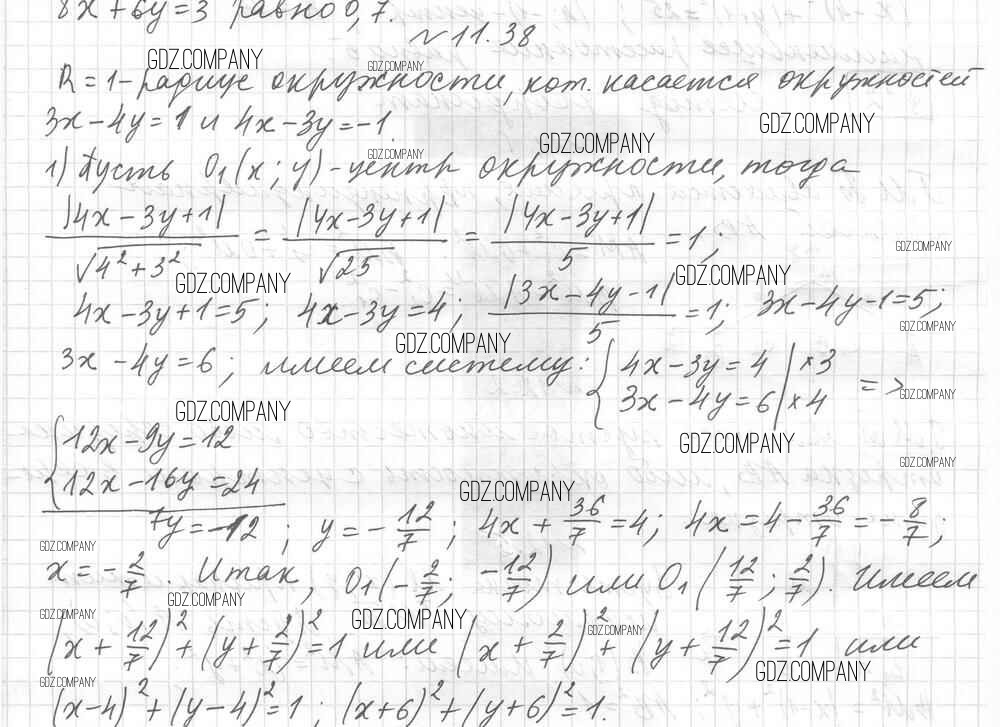 8x + 6y = 3 равно 0,7.
№ 11.38
GDZ.COMPANY GDZ.COMPANY
R = 1 - радиус окружности, кот. касается окружностей
3x - 4y = 1 и 4x - 3y = -1.
GDZ.COMPANY GDZ.COMPANY GDZ.COMPANY
1) Пусть O₁(x; y) - центр окружности, тогда
|4x - 3y + 1| / √(4² + 3²) = |4x - 3y + 1| / √25 = |4x - 3y + 1| / 5 = 1;
GDZ.COMPANY GDZ.COMPANY GDZ.COMPANY
4x - 3y + 1 = 5; 4x - 3y = 4; |3x - 4y - 1| / 5 = 1; 3x - 4y - 1 = 5;
GDZ.COMPANY GDZ.COMPANY
3x - 4y = 6; имеем систему: { 4x - 3y = 4 | × 3
3x - 4y = 6 | × 4 =>
GDZ.COMPANY GDZ.COMPANY
{ 12x - 9y = 12
GDZ.COMPANY GDZ.COMPANY
12x - 16y = 24
GDZ.COMPANY
7y = -12; y = - 12/7; 4x + 36/7 = 4; 4x = 4 - 36/7 = - 8/7;
GDZ.COMPANY
x = - 2/7. Итак, O₁(- 2/7; - 12/7) или O₁(12/7; 2/7). Имеем
GDZ.COMPANY GDZ.COMPANY GDZ.COMPANY
(x + 12/7)² + (y + 2/7)² = 1 или (x + 2/7)² + (y + 12/7)² = 1 или
GDZ.COMPANY GDZ.COMPANY GDZ.COMPANY
(x - 4)² + (y - 4)² = 1; (x + 6)² + (y + 6)² = 1.